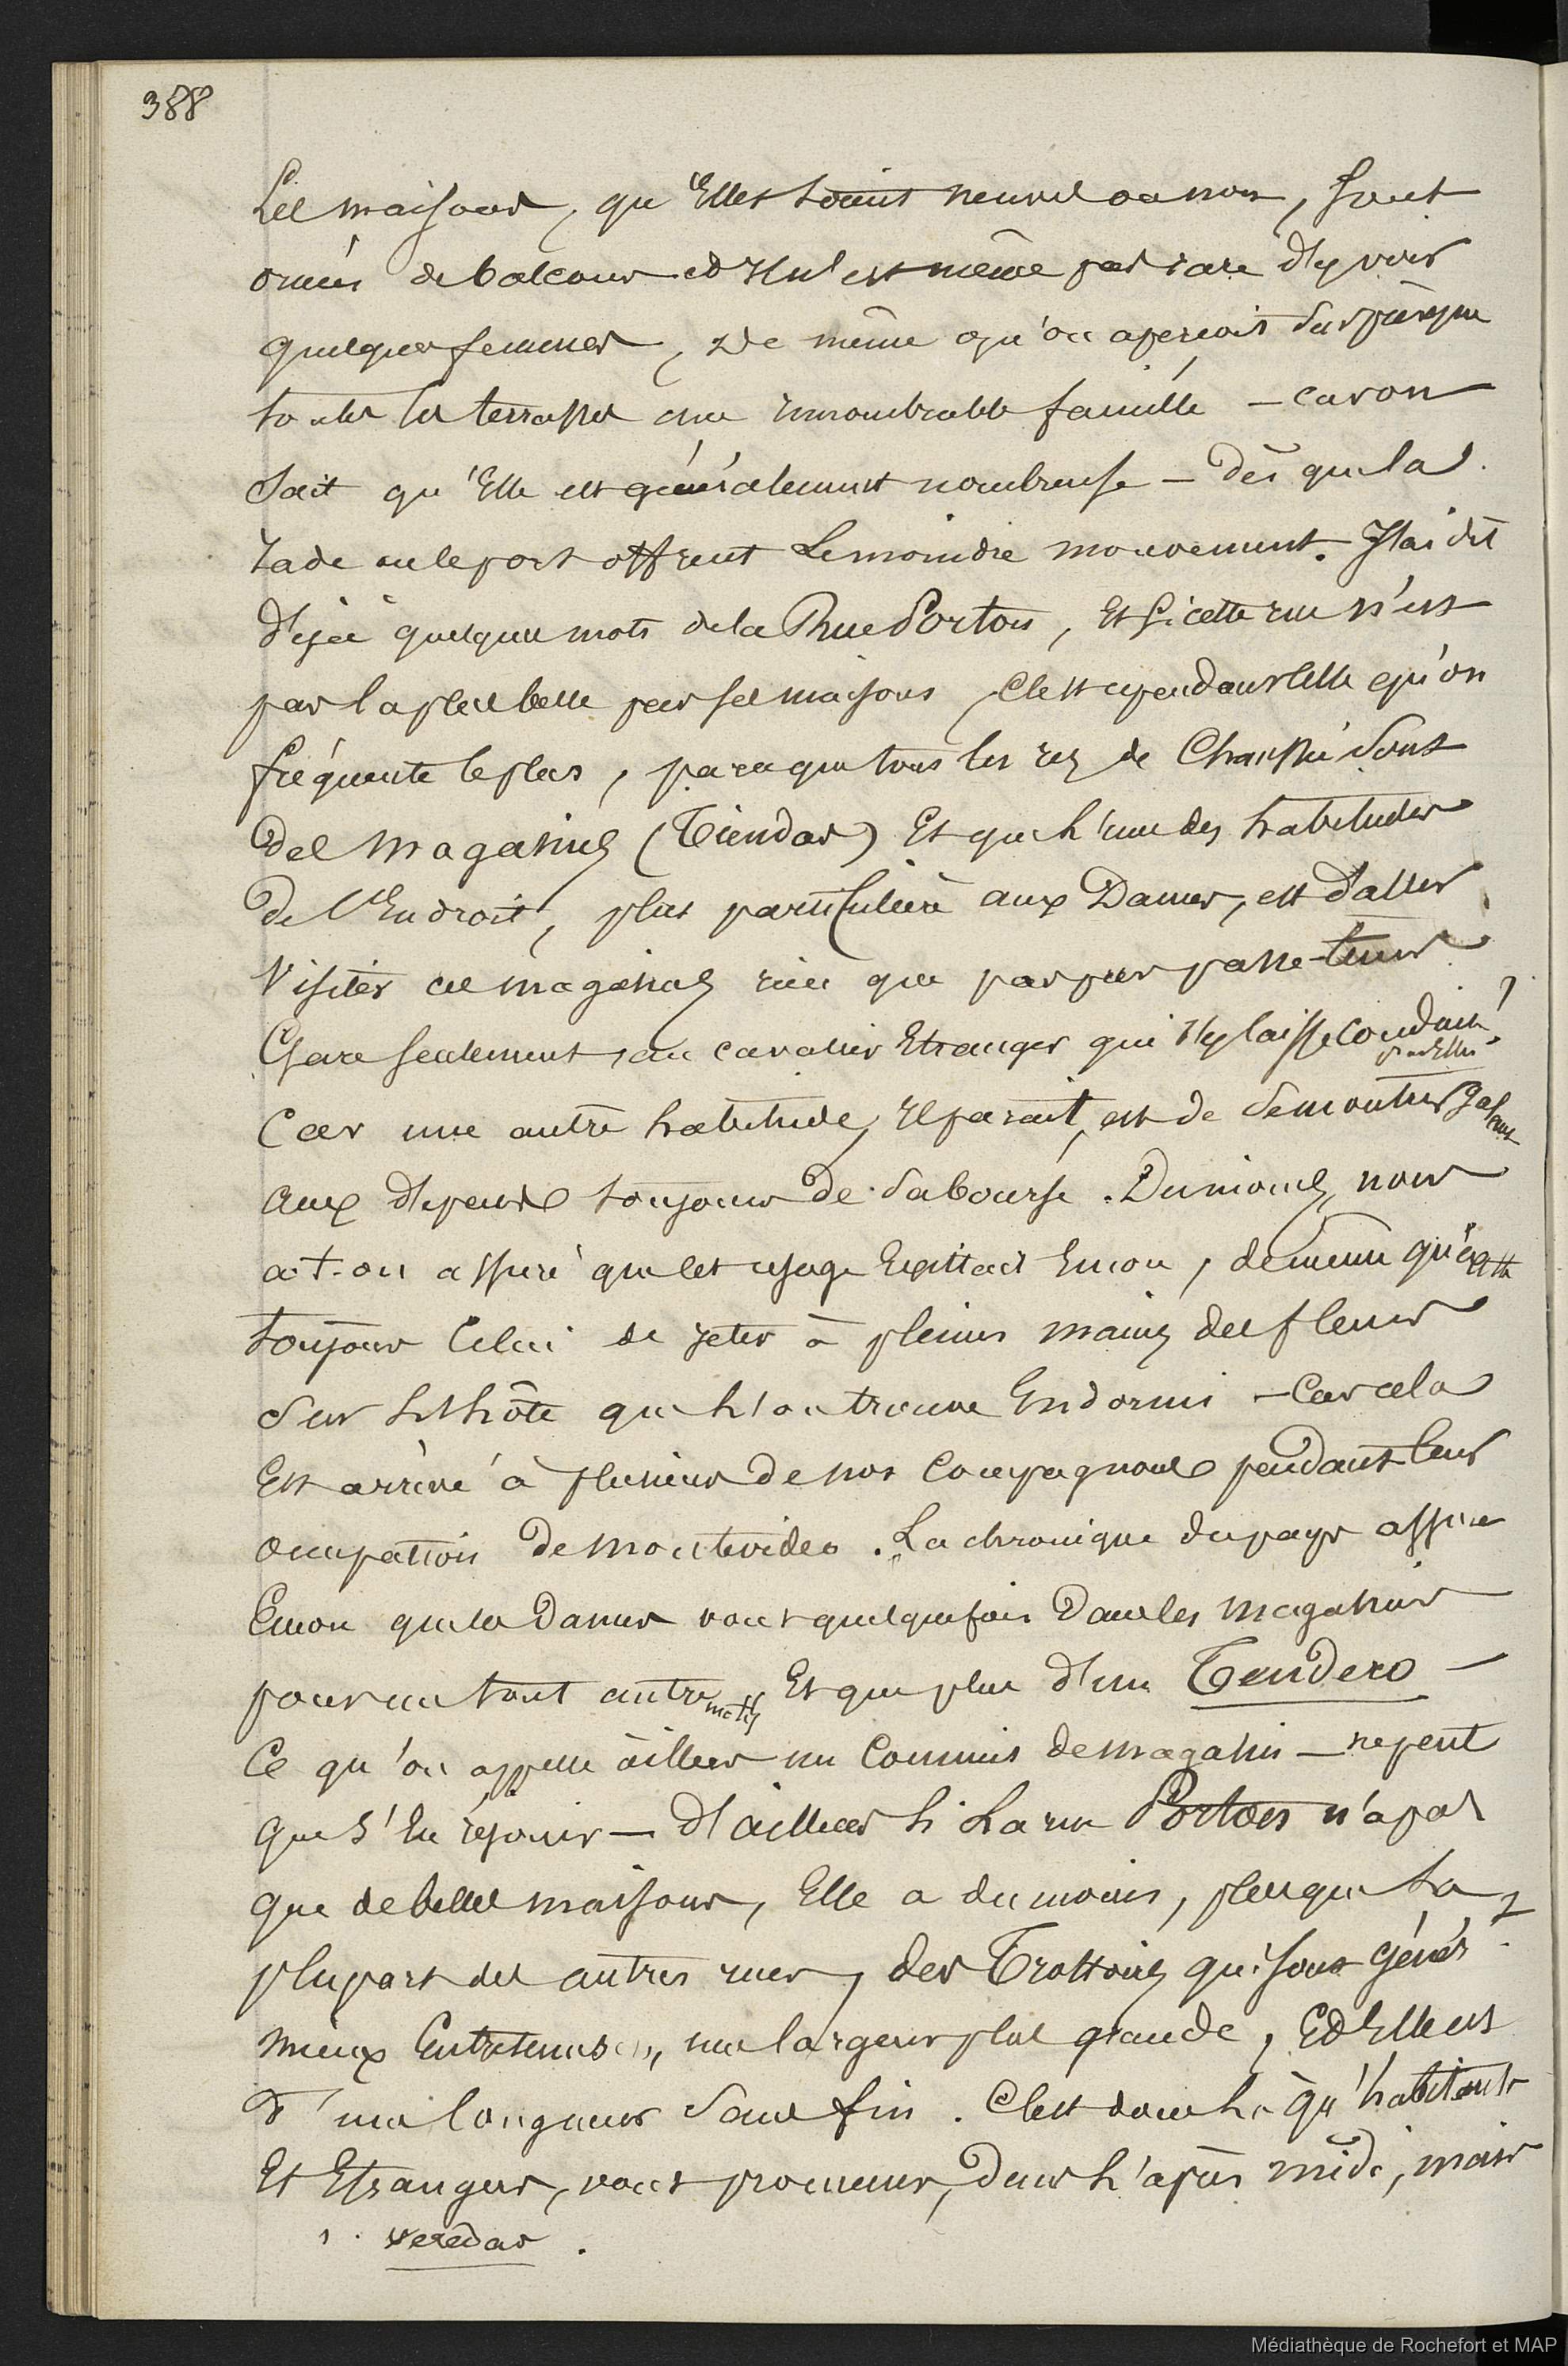 388
Les maisons, qu'Elles soient neuves ou non, sont
ornées de balcons et Il n'est même pas rare d'y voir
quelques femmes, de même qu'on aperçoit sur presque
toutes les terrasses une innombrable famille – car on
sait qu'Elle est généralement nombreuse – dès que la
rade ou le port offrent le moindre mouvement. J'ai dit
déjà quelques mots de la Rue Portons, Et si cette rue n'est
pas la plus belle par ses maisons, C'est cependant celle qu'on
fréquente le plus, parceque tous les rez de Chaussée sont
des magasins (Tiendas) Et que l'une des habitudes
de l'Endroit, plus particulière aux Dames, est d'aller
Visiter ces magasins rien que par pur passe-tems.
Gare seulement, au cavalier Etranger qui s'y laisse conduire par Elles!
Car une autre habitude, Il parait, est de se montrer galant
aux dépens toujours de sa bourse. Du moins, nous
a-t-on assuré que cet usage Existait Encore, de même qu'existe
toujours Celui de jeter à pleines mains des fleurs
sur l'hôte que l'on trouve Endormi – Car cela
Est arrivé à plusieurs de nos Compagnons pendant leur
occupation de Montevideo. La chronique du pays assure
Encore que les Dames vont quelquefois Dans les magasins
pour un tout autre motif, Et que plus d'un Tendero –
Ce qu'on appelle ailleurs un Commis de magasin – ne peut
que s'En réjouir – D'ailleurs si La rue Portons n'a pas
que de belles maisons, Elle a du moins, plus que La
plupart des autres rues, des Trottoirs 1 qui sont génér.
mieux Entretenus, une largeur plus grande, Et Elle est
d'une longueur sans fin. C'est donc là qu'habitants
Et Etrangers, vont promener, Dans l'après midi, mais
1. veredas.
Médiathèque de Rochefort et MAP